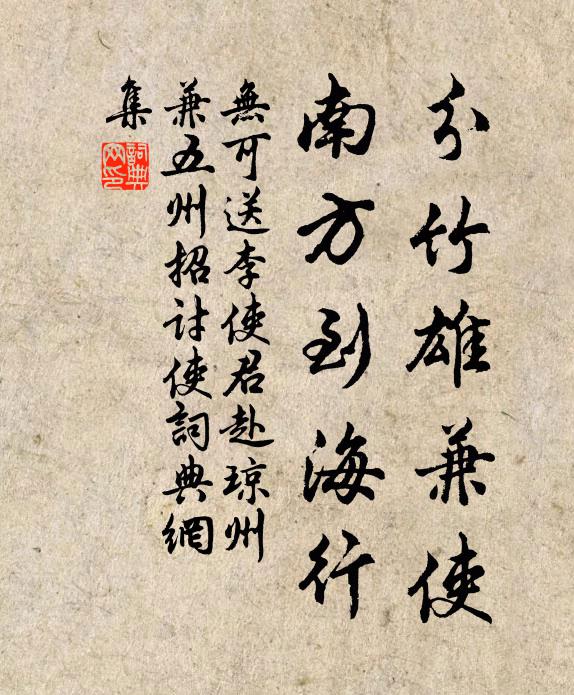 分竹雄兼使
南方到海行
無可送李使君赴琼州
兼五州招討使詞典網
集
詞典網印